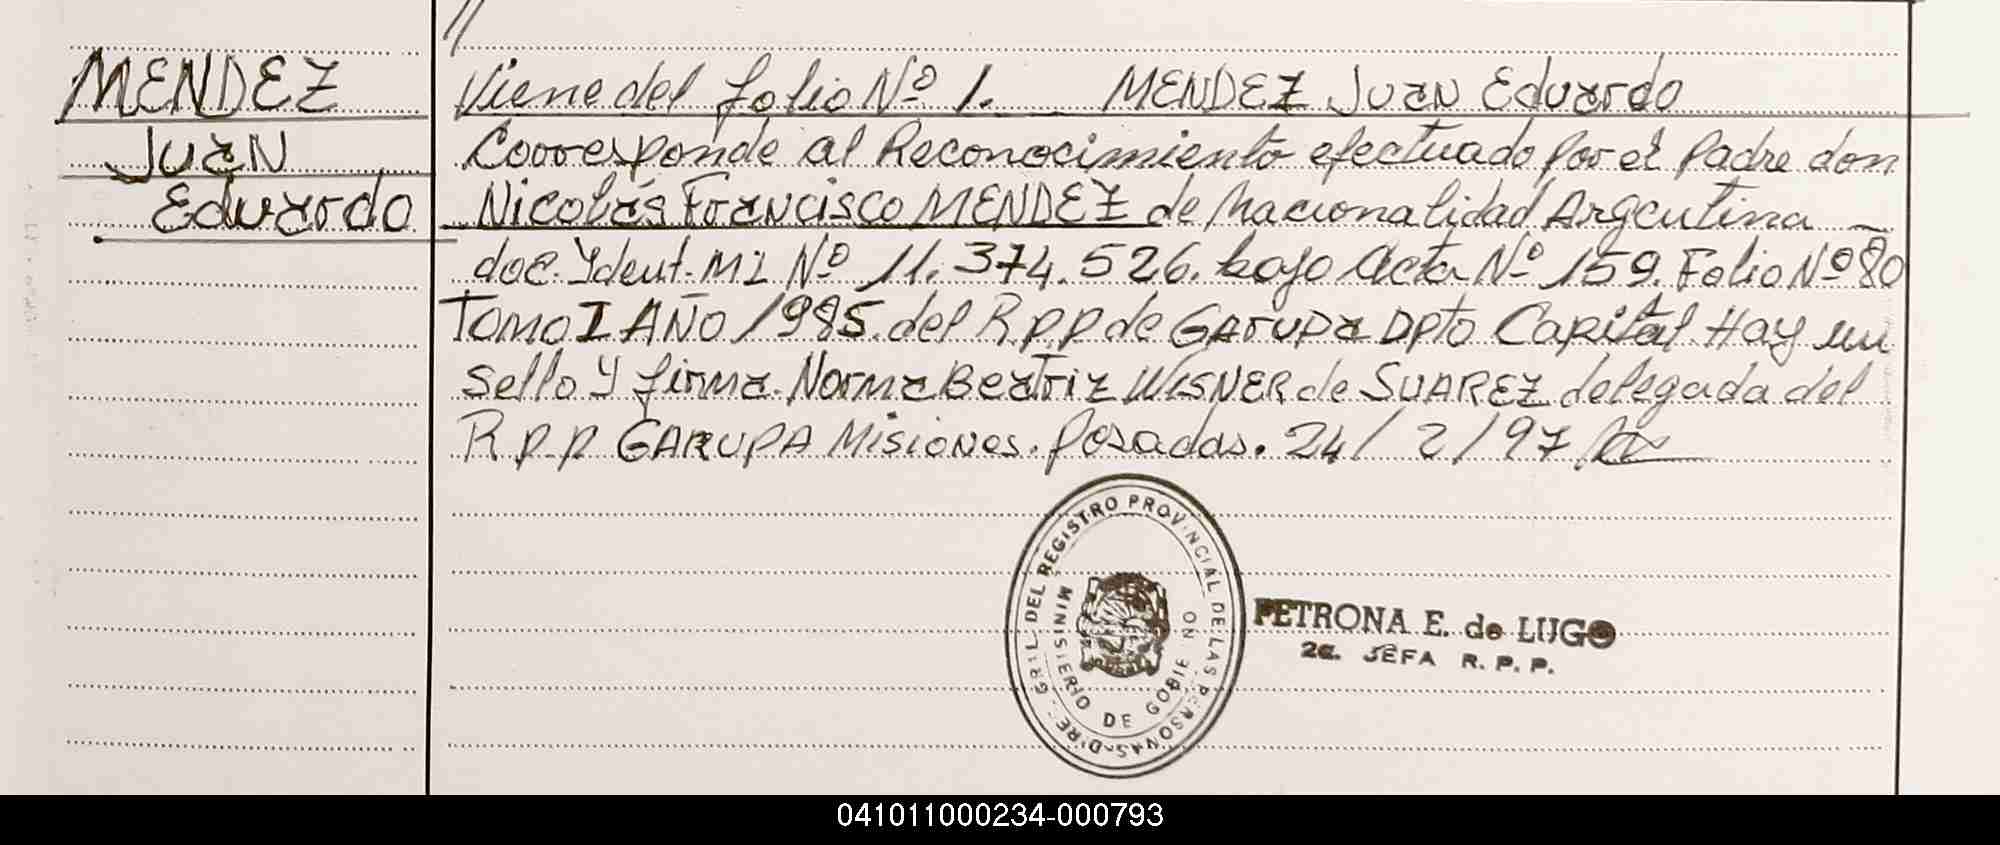 //
MENDEZ
Juan
Eduardo
Viene del folio Nº 1. MENDEZ Juan Eduardo
Corresponde al Reconocimiento efectuado por el Padre don
Nicolás Francisco MENDEZ de Nacionalidad Argentina
doc. Ydent. MI Nº 11.374.526. bajo Acta Nº 159. Folio Nº 80
Tomo I AÑO 1985. del R.p.p de GARUPA Dpto Capital. Hay un
Sello Y firma. Norma Beatriz WISNER de SUAREZ delegada del
R.p.p GARUPA Misiones. Posadas. 24/2/97
GRAL. DEL REGISTRO PROVINCIAL DE LAS PERSONAS-D'RE
MINISTERIO DE GOBIE NO
PETRONA E. de LUGO
2a. JEFA R. P. P.
041011000234-000793